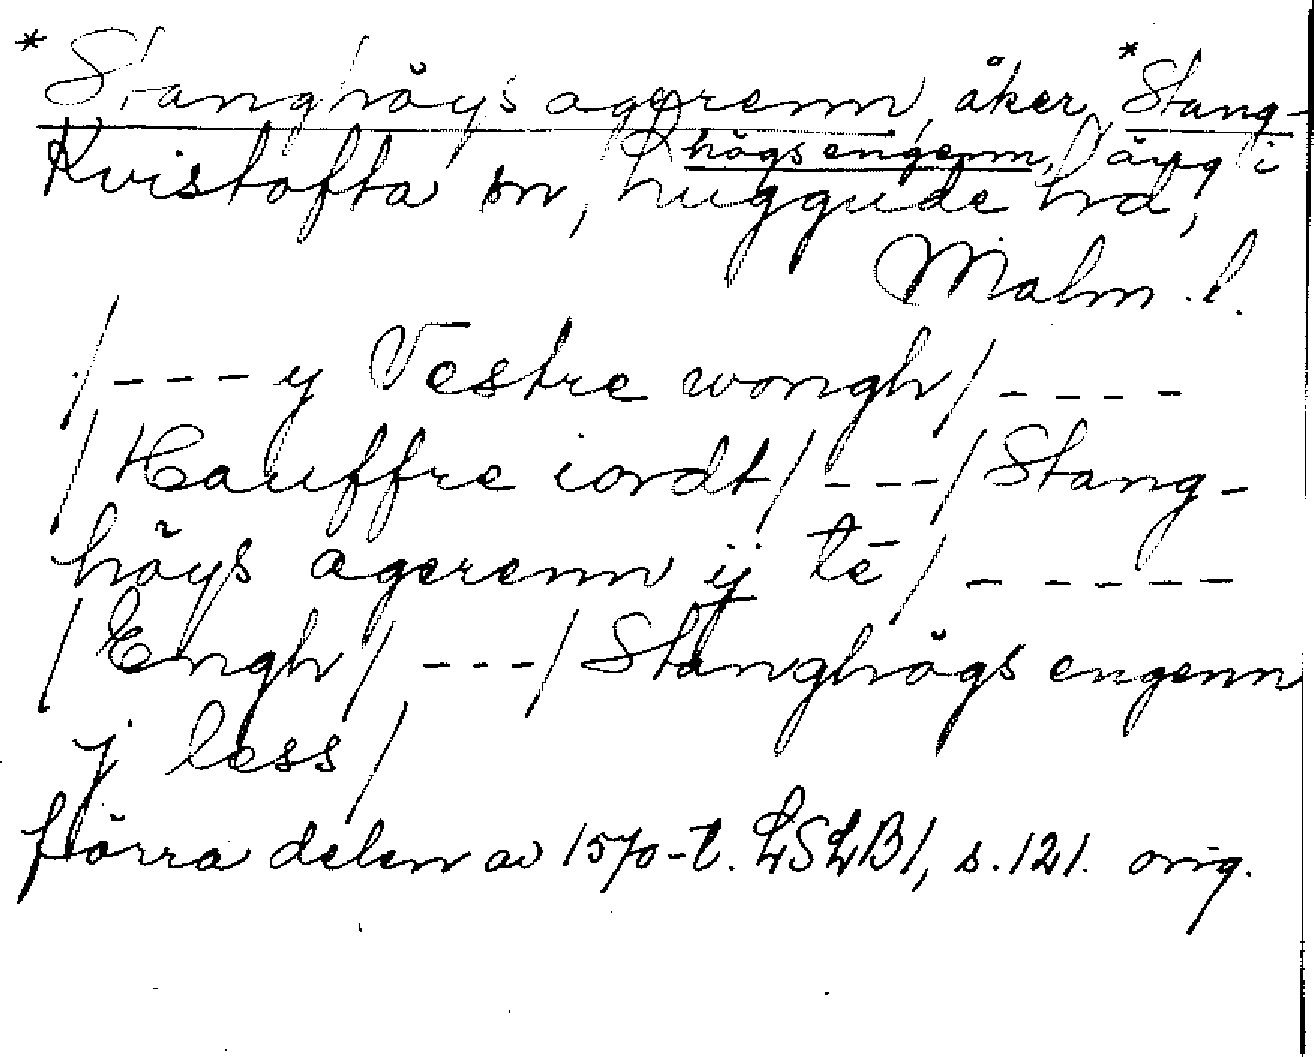 *Stanghöys agerenn, åker, *Stang-
högs engenn, äng i
Kvistofta sn, Luggude hd,
Malm. l.
/---y Vestre wongh/----
/Hauffre iordt/---/Stang-
höys agerenn ij te/-----
/Engh/---/Stanghögs engenn
j less/
förra delen av 1570-t. LSLB1, s.121. orig.